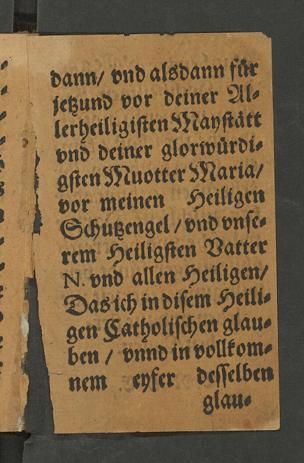 dann/ vnd alsdann für
jetzund vor deiner Al-
lerheiligisten Maystätt
vnd deiner glorwürdi-
gsten Muotter Maria/
vor meinen Heiligen
Schutzengel / vnd vnse-
rem Heiligsten Vatter
N. vnd allen Heiligen/
Das ich in disem Heili-
gen Catholischen glau-
ben / vnnd in vollkom-
nem eyfer desselben
glau-